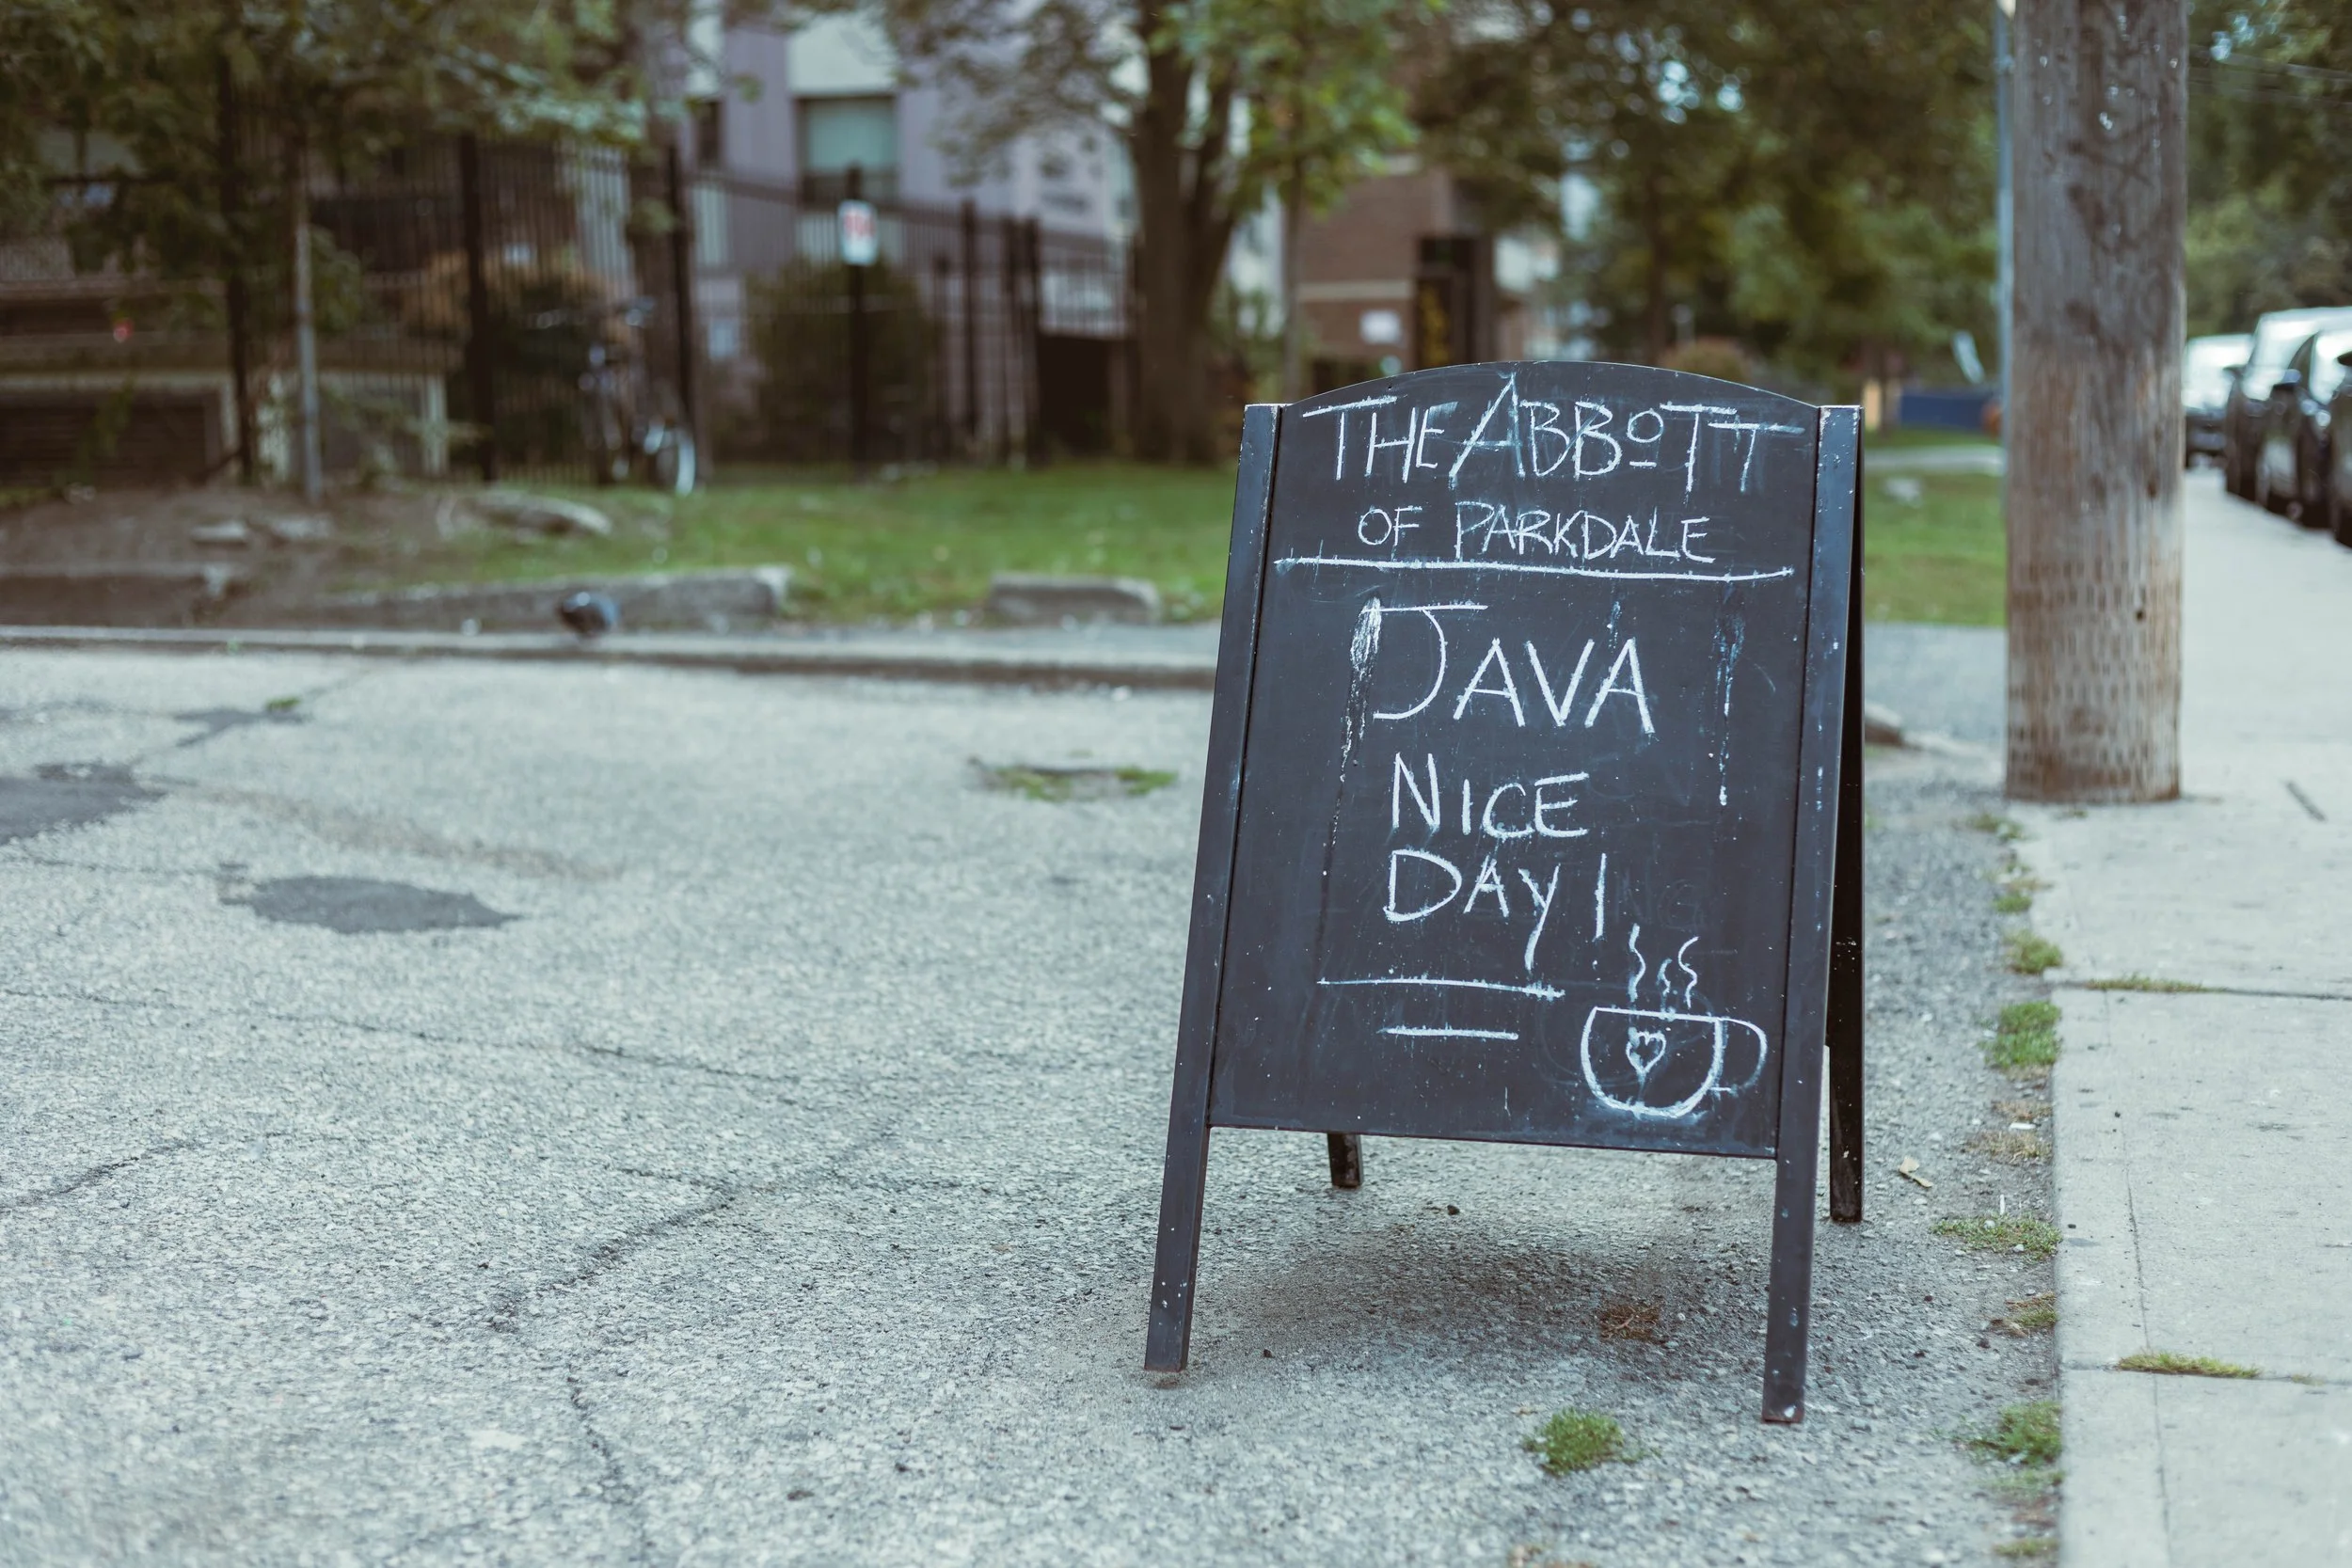 THE ABBOTT
OF PARKDALE
JAVA
NICE
DAY!